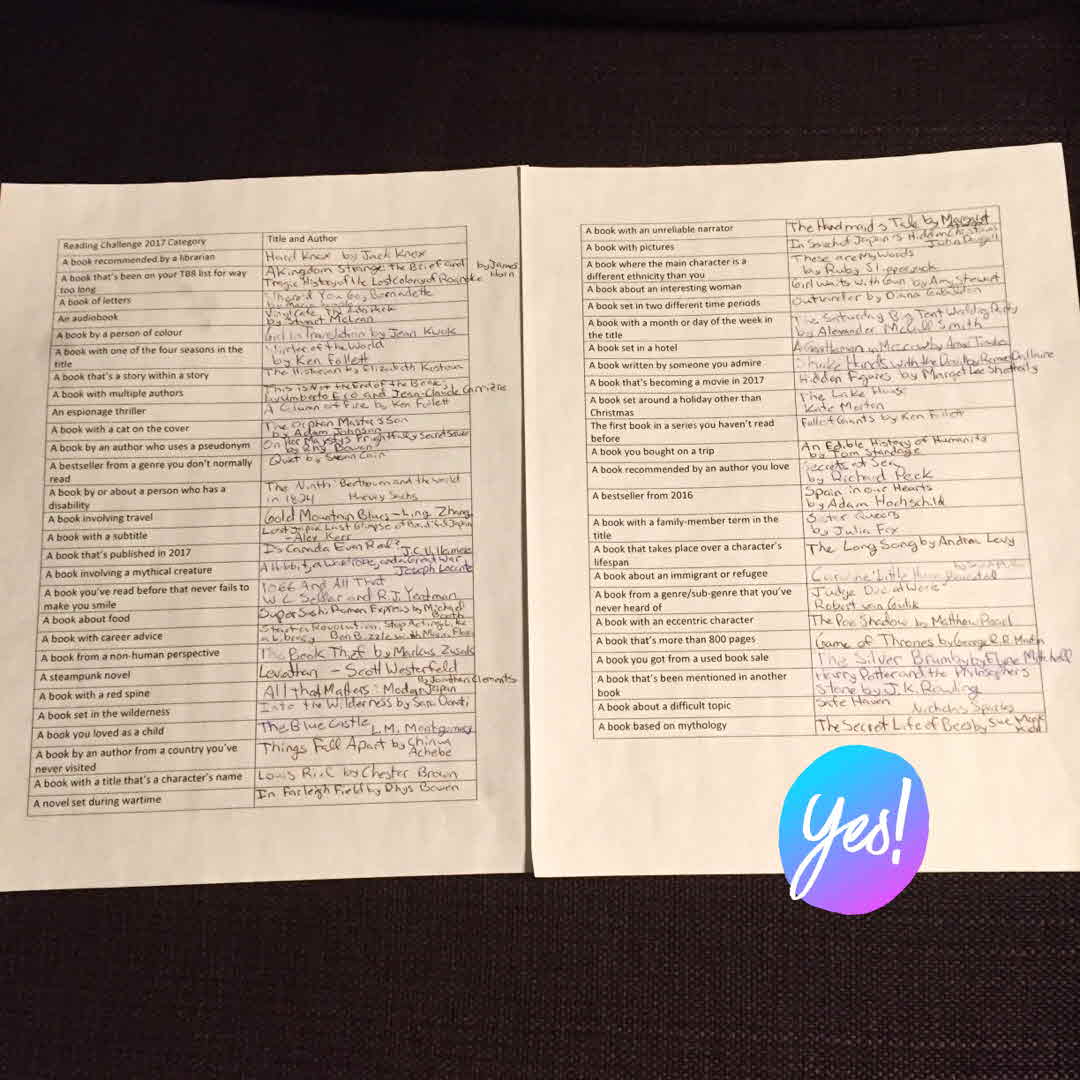 Reading Challenge 2017 Category Title and Author
A book recommended by a librarian Hard Knox by Jack Knox
A book that's been on your TBR list for way A Kingdom Strange the Brief and by James
too long Tragic History of the Lost colony of Roanoke Horn
A book of letters Where'd You Go, Bernadette
by
An audiobook Vinyl Cafe
by Stuart McLean
A book by a person of colour Girl in Translation by Jean Kwok
A book with one of the four seasons in the Winter of the World
title by Ken Follett
A book that's a story within a story The Historian by Elizabeth Kostova
A book with multiple authors This is Not the End of the Book;
by Umberto Eco and Jean-Claude Carrière
An espionage thriller A Column of Fire by Ken Follett
A book with a cat on the cover The Orphan Master's Son
by Adam Johnson
A book by an author who uses a pseudonym On Her Majesty's Frightfully Secret Service
by Rhys Bowen
A bestseller from a genre you don't normally Quiet by Susan Cain
read
A book by or about a person who has a The Ninth: Beethoven and the World
disability in 1824 Harvey Sachs
A book involving travel Gold Mountain Blues - Ling Zhang
A book with a subtitle Lost Japan Last Glimpse of Beautiful Japan
- Alex Kerr
A book that's published in 2017 Is Canada Even Real? J.C. Villamere
A book involving a mythical creature A Hobbit, a Wardrobe, and a Great War
Joseph Loconte
A book you've read before that never fails to 1066 And All That
make you smile W.C. Sellar and R.J. Yeatman
A book about food Super Sushi Ramen Express by Michael
Booth
A book with career advice Start a Revolution, Stop Acting Like
a Library Ben Bizzle with Maria Flora
A book from a non-human perspective The Book Thief by Markus Zusak
A steampunk novel Leviathan - Scott Westerfeld
A book with a red spine All That Matters: Modern Japan by Jonathan Clements
A book set in the wilderness Into the Wilderness by Sara Donati
A book you loved as a child The Blue Castle L.M. Montgomery
A book by an author from a country you've Things Fall Apart by Chinua
never visited Achebe
A book with a title that's a character's name Louis Riel by Chester Brown
A novel set during wartime In Farleigh Field by Rhys Bowen
A book with an unreliable narrator The Handmaid's Tale by Margaret
A book with pictures In Search of Japan's Hidden Christians
John Dougill
A book where the main character is a These are My Words
different ethnicity than you by Ruby Slipperjack
A book about an interesting woman Girl Waits with Gun by Amy Stewart
A book set in two different time periods Outlander by Diana Gabaldon
A book with a month or day of the week in The Saturday Big Tent Wedding Party
the title by Alexander McCall Smith
A book set in a hotel A Gentleman in Moscow by Amor Towles
A book written by someone you admire Shake Hands with the Devil by Romeo Dallaire
A book that's becoming a movie in 2017 Hidden Figures by Margot Lee Shetterly
A book set around a holiday other than The Lake House
Christmas Kate Morton
The first book in a series you haven't read Fall of Giants by Ken Follett
before
A book you bought on a trip An Edible History of Humanity
by Tom Standage
A book recommended by an author you love Secrets at Sea
by Richard Peck
A bestseller from 2016 Spain in our Hearts
by Adam Hochschild
A book with a family-member term in the Sister Queens
title by Julia Fox
A book that takes place over a character's The Long Song by Andrea Levy
lifespan
A book about an immigrant or refugee Caroline: Little House Revisited
A book from a genre/sub-genre that you've Judge Dee at Work
never heard of Robert van Gulik
A book with an eccentric character The Poe Shadow by Matthew Pearl
A book that's more than 800 pages Game of Thrones by George R.R. Martin
A book you got from a used book sale The Silver Brumby by Elyne Mitchell
A book that's been mentioned in another Harry Potter and the Philosopher's
book Stone by J.K. Rowling
A book about a difficult topic Safe Haven Nicholas Sparks
A book based on mythology The Secret Life of Bees by Sue Monk
Kidd
yes!